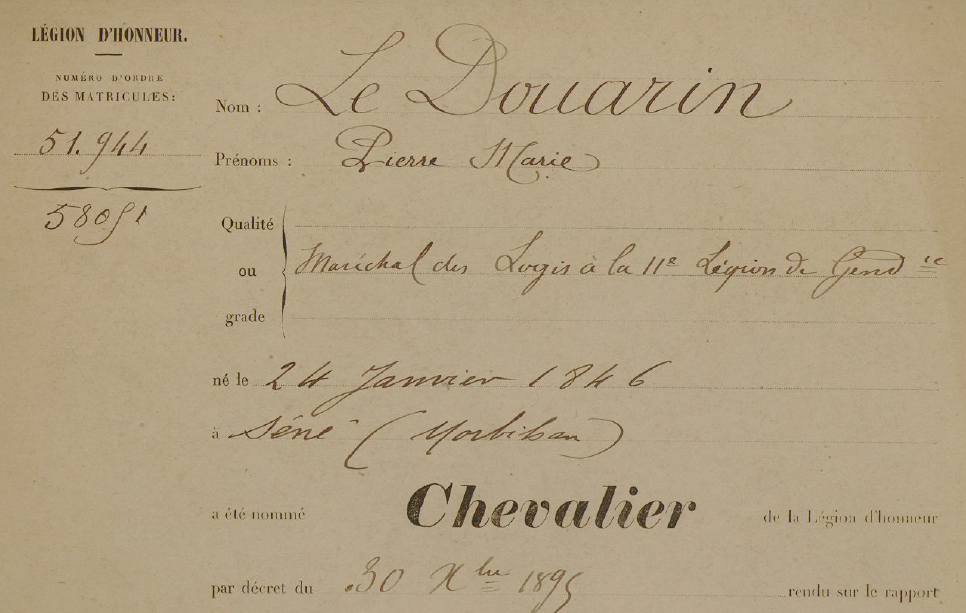 LÉGION D'HONNEUR.
NUMÉRO D'ORDRE
DES MATRICULES:
51.944
58051
Nom : Le Douarin
Prénoms : Pierre Marie
Qualité
ou
grade
Maréchal des Logis à la 11e Légion de Gendie
né le 24 Janvier 1846
à Séné (Morbihan)
a été nommé Chevalier de la Légion d'honneur
par décret du 30 Xbre 1895 rendu sur le rapport